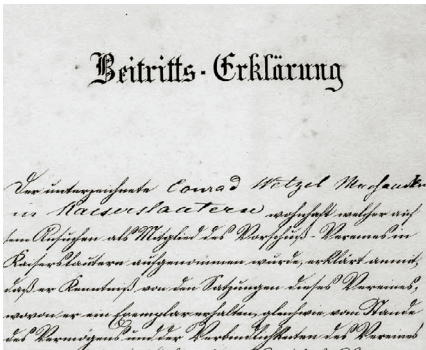 Beitritts-Erklärung
Der unterzeichnete Conrad Wetzel Mechaniker
in Kaiserslautern wohnhaft welcher auf
sein Ansuchen als Mitglied des Vorschuß-Vereines in
Kaiserslautern aufgenommen wurde, erklärt anmit,
daß er Kenntniß von den Satzungen dieses Vereines,
wovon er ein Exemplar erhalten, gleichwie vom Stande
des Vermögens und der Verbindlichkeiten des Vereines